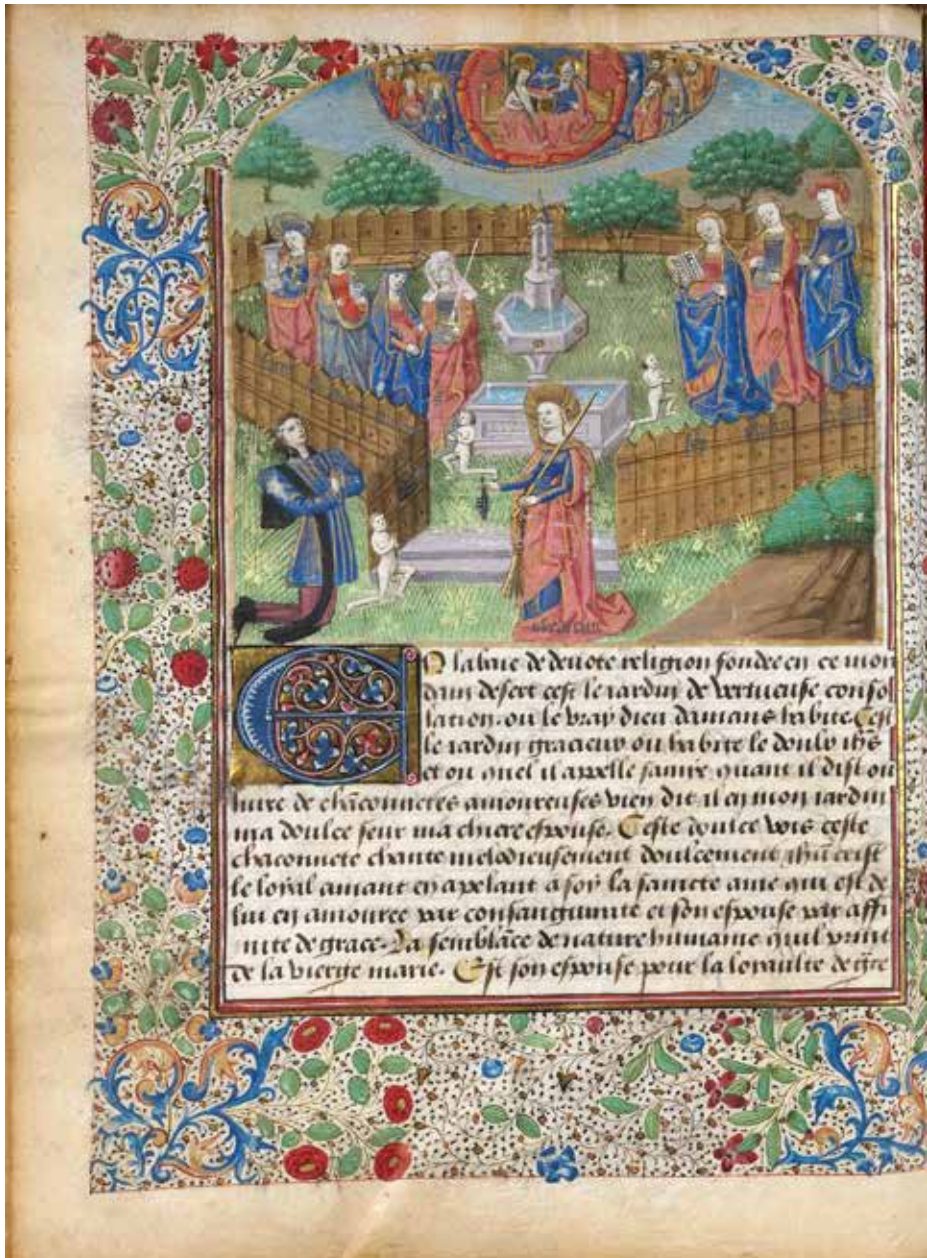 En la baie de deuote religion fondee en ce mon
dain desert cest le iardin de vertueuse conso
lation. ou le vray dieu damours habite. Cest
le iardin gracieux ou habite le doulx ihs
et ou quel il appelle samie quant il dist ou
liure de chāconnetes amoureuses vien dit il en mon iardin
ma doulce seur ma chiere espouse. Ceste doulce vois ceste
chāconnete chante melodieusement doulcement crist
le loyal amant en apelant a soy la saincte ame qui est de
lui en amouree par consanguinite et son espouse par affi
nite de grace. La semblāce de nature humaine quil print
de la vierge marie. Est son espouse pour la loyaulte de